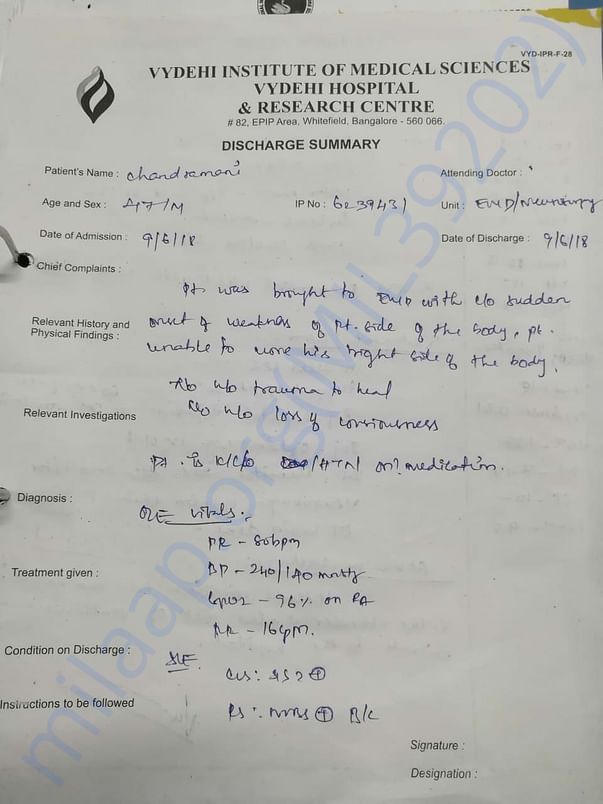 VYD-IPR-F-28
VYDEHI INSTITUTE OF MEDICAL SCIENCES
VYDEHI HOSPITAL
& RESEARCH CENTRE
# 82, EPIP Area, Whitefield, Bangalore - 560 066.
DISCHARGE SUMMARY
Patient's Name : Chandramani Attending Doctor :
Age and Sex : 47/M IP No : 6239431 Unit : EMD/Neurosurgery
Date of Admission : 9/6/18 Date of Discharge : 9/6/18
Chief Complaints :
Pt was brought to EMD with c/o sudden
Relevant History and Physical Findings : onset of weakness of Rt. side of the body, pt.
unable to move his right side of the body.
No h/o trauma to head
Relevant Investigations No h/o loss of consiousness
Pt. is K/C/o /HTN/ on? medication.
Diagnosis :
O/E vitals :
PR - 80bpm
Treatment given : BP - 240/140 mmHg
SpO2 - 96% on RA
RR - 16cpm.
Condition on Discharge : S/E
CVS : S1S2 ⊕
Instructions to be followed
RS : NVBS ⊕ B/L
Signature :
Designation :
milaap.org(MIL39202)